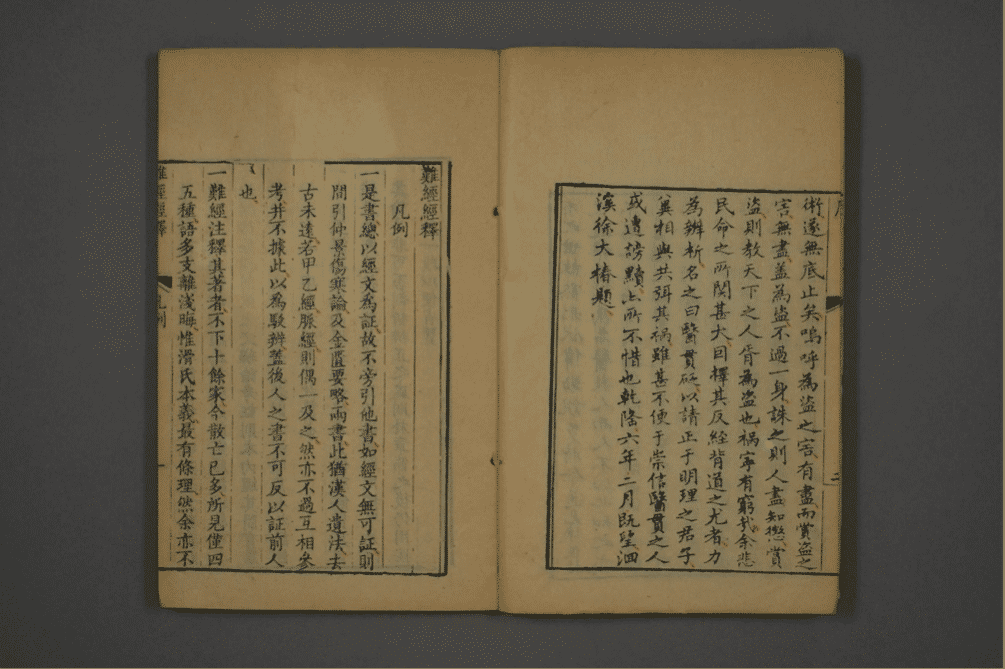 術遂無底止矣嗚呼為盜之害有盡而賞盜之
害無盡蓋為盜不過一身誅之則人盡知懲賞
盜則教天下之人胥為盜也禍寧有窮哉余悲
民命之所関甚大因擇其反經背道之尤者力
為辨析名之曰醫貫砭以請正于明理之君子
冀相與共弭其禍雖甚不便于崇信醫貫之人
或遭謗黷上所不惜也乾隆六年二月既望洄
溪徐大椿題
難經經釋
凡例
一是書總以經文為証故不旁引他書如經文無可証則
間引仲景傷寒論及金匱要略兩書此猶漢人遺法去
古未遠若甲乙經脈經則偶一及之然亦不過互相參
考并不據此以為駁辨蓋後人之書不可反以証前人
也
一難經注釋其著者不下十餘家今散亡已多所見僅四
五種語多支離淺晦惟滑氏本義最有條理然余亦不
難經經釋
凡例
一